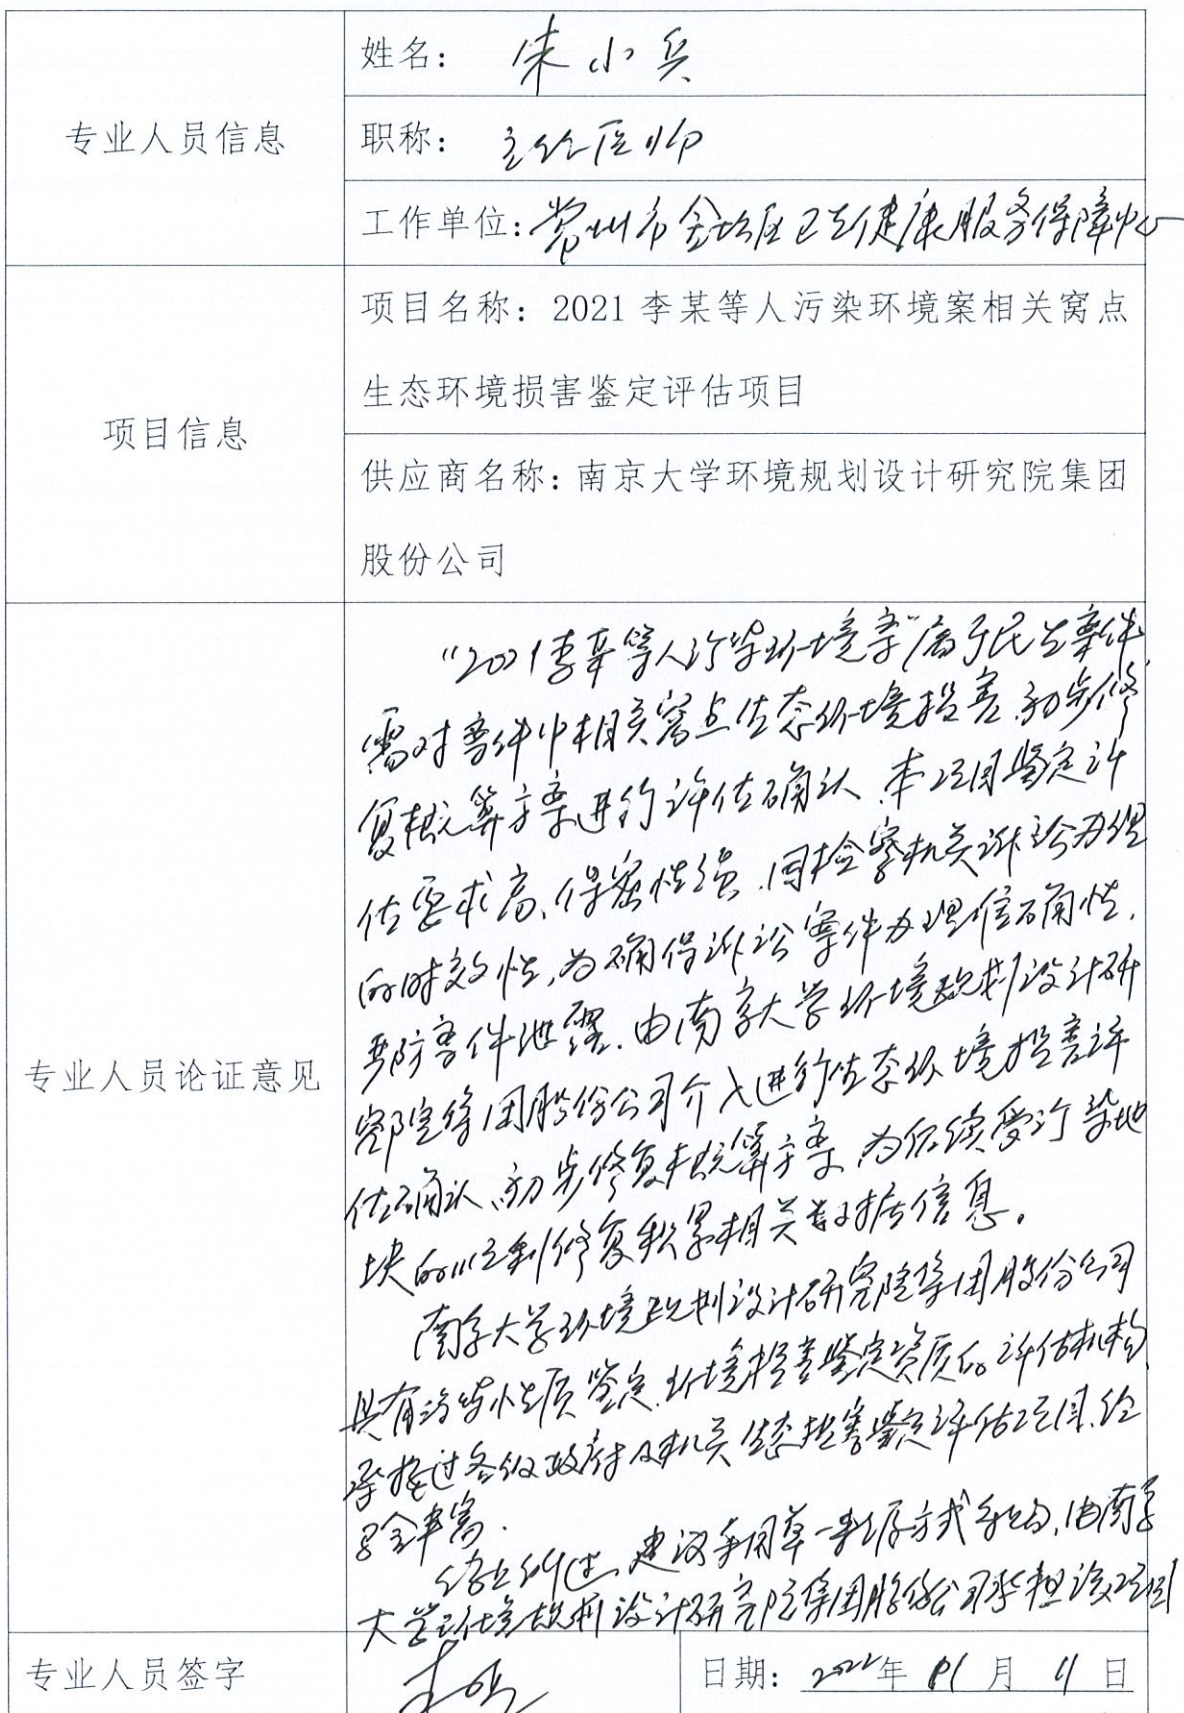 专业人员信息
姓名：朱小兵
职称：主任医师
工作单位：常州市金坛区卫生健康服务保障中心
项目信息
项目名称：2021李某等人污染环境案相关窝点
生态环境损害鉴定评估项目
供应商名称：南京大学环境规划设计研究院集团
股份公司
专业人员论证意见
“2021李某等人污染环境案”属于民生案件
需对案件中相关窝点生态环境损害、初步修
复概算方案进行评估确认。本项目鉴定评
估要求高、保密性强、同检察机关诉讼办理
的时效性，为确保诉讼案件办理准确性，
预防案件泄露，由南京大学环境规划设计研
究院集团股份公司介入进行生态环境损害评
估确认、初步修复概算方案，为后续受污染地
块的顺利修复积累相关数据信息。
南京大学环境规划设计研究院集团股份公司
具有污染性质鉴定、环境损害鉴定资质的评估机构，
承接过各级政府及机关生态损害鉴定评估项目，经
验丰富。
综上所述，建议采用单一来源方式采购，由南京
大学环境规划设计研究院集团股份公司承担该项目
专业人员签字
日期：2022年01月11日